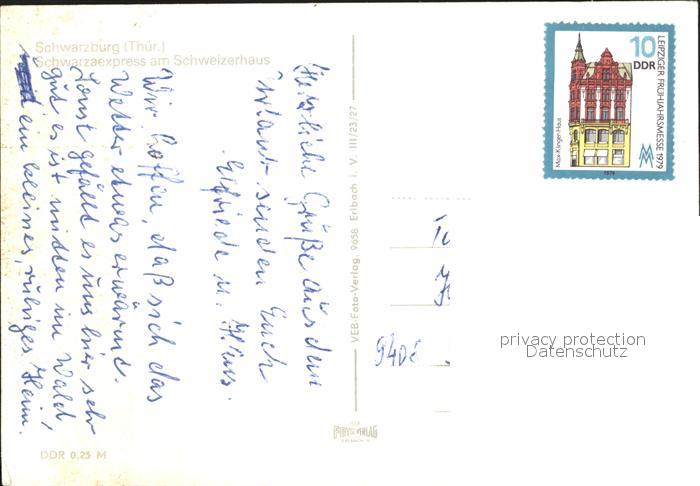 Schwarzburg (Thür.)
Schwarzaexpress am Schweizerhaus
Herzliche Grüße aus dem
Urlaub senden Euch
Elfriede u. Hans.
Wir hoffen, daß sich das
Wetter etwas erwärmt.
Sonst gefällt es uns hier sehr
gut, es ist mitten im Wald,
ein kleines, ruhiges Heim.
DDR 0,25 M
VEB-Foto-Verlag, 9658 Erlbach i. V. III/23/27
FOTO-VERLAG
ERLBACH
10
DDR
LEIPZIGER FRÜHJAHRSMESSE 1979
Max-Klinger-Haus
1979
MM
9408
privacy protection
Datenschutz